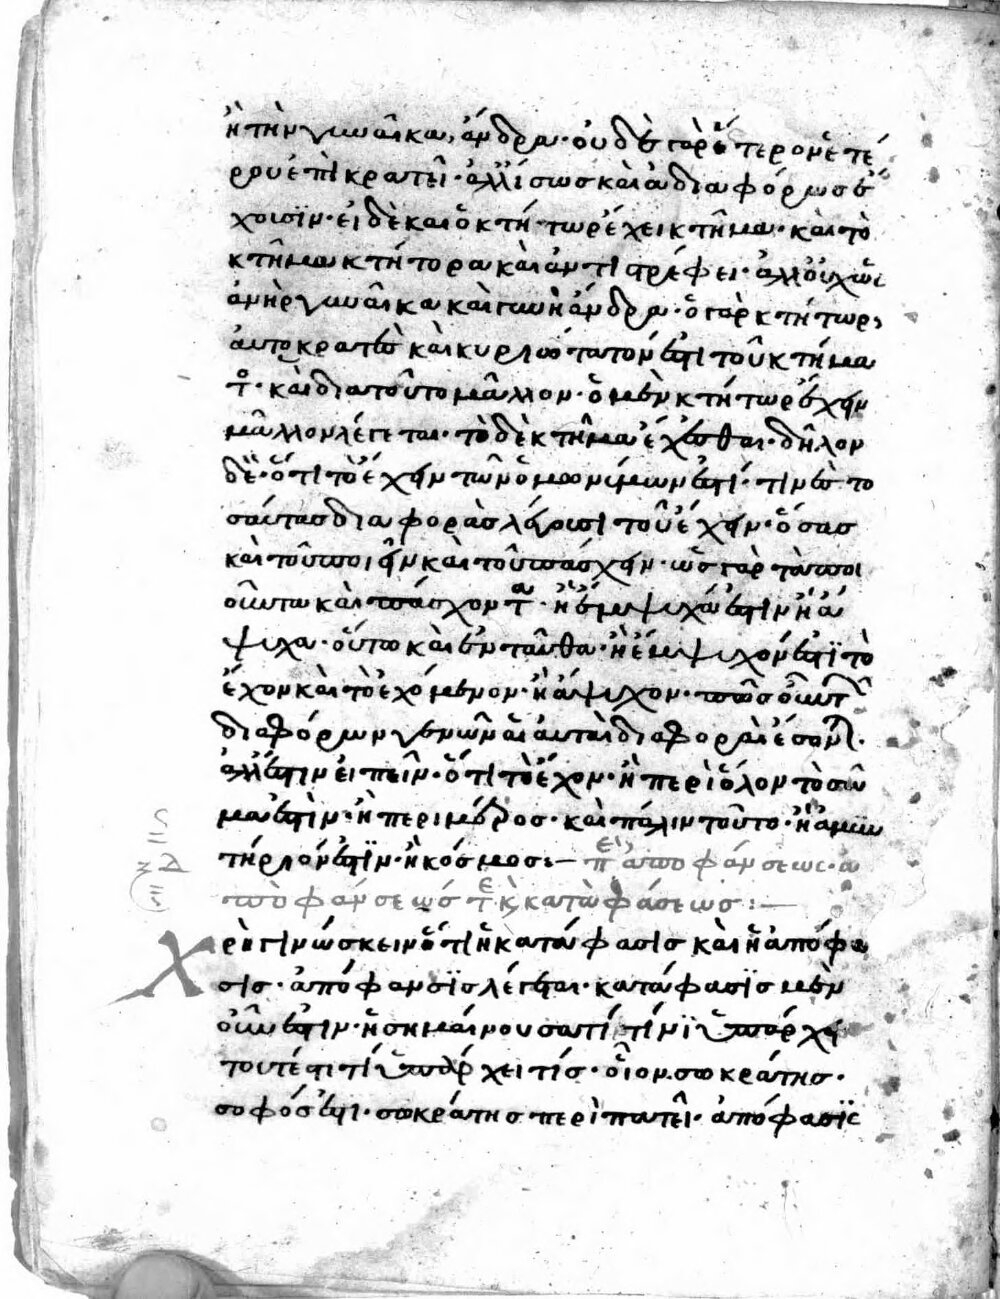 ἢ τὴν γυναῖκα, ἄνδρα· οὐδὲ γὰρ ἕτερον ἑτέ
ρου ἐπικρατεῖ· ἀλλ' ἴσως καὶ ἀδιαφόρως ἔ
χουσϊν· εἰ δὲ καὶ ὁ κτήτωρ ἔχει κτῆμα· καὶ τὸ
κτῆμα κτήτορα καὶ ἀντιστρέφει· ἀλλ' οὐχ ὡς
ἀνὴρ γυναῖκα καὶ γυνὴ ἄνδρα· ὁ γὰρ κτήτωρ,
αὐτοκρατὲς καὶ κυριώτατόν ἐστι τοῦ κτήμα
τος· καὶ διατοῦτο μᾶλλον· ὁ μὲν κτήτωρ ἔχειν
μᾶλλον λέγεται· τὸ δὲ κτῆμα ἔχεσθαι· δῆλον
δὲ· ὅτι τὸ ἔχειν τῶν ὁμωνύμων ἐστί· τινὲς το
σαύτας διαφορὰς λέγουσι τοῦ ἔχειν· ὅσας
καὶ τοῦ ποιεῖν καὶ τοῦ πάσχειν· ὡς γὰρ τὰ ποι
οῦντα καὶ πάσχοντα· ἢ ἔμψυχά ἐστιν ἢ ἄ
ψυχα· οὕτω καὶ ἐνταῦθα· ἢ ἔμψυχόν ἐστϊ τὸ
ἔχον καὶ τὸ ἐχόμενον· ἢ ἄψυχον· πῶς οὖν τῶν
διαφόρων γενῶν αἱ αὐταὶ διαφοραὶ ἔσονται·
ἀλλ' ἔστιν εἰπεῖν· ὅτι τὸ ἔχον· ἢ περὶ ὅλον τὸ σῶ
μα ἐστὶν· ἢ περὶ μέρος· καὶ πάλιν τοῦτο· ἢ ἀμυν
τήριόν ἐστϊν· ἢ κόσμος:— περὶ ἀποφάνσεως· ἀ
ποφάνσεώς τε κ(αὶ) καταφάσεως:—
Χρὴ γινώσκειν ὅτι ἡ κατάφασις καὶ ἡ ἀπόφα
σις· ἀπόφανσϊς λέγεται· κατάφασϊς μὲν
οὖν ἐστιν· ἡ σημαίνουσα τί τινϊ ὑπάρχει
τουτέστι τί ὑπάρχει τίς· οἷον σωκράτης·
σοφός ἐστι· σωκράτης περὶπατεῖ· ἀπόφασϊς